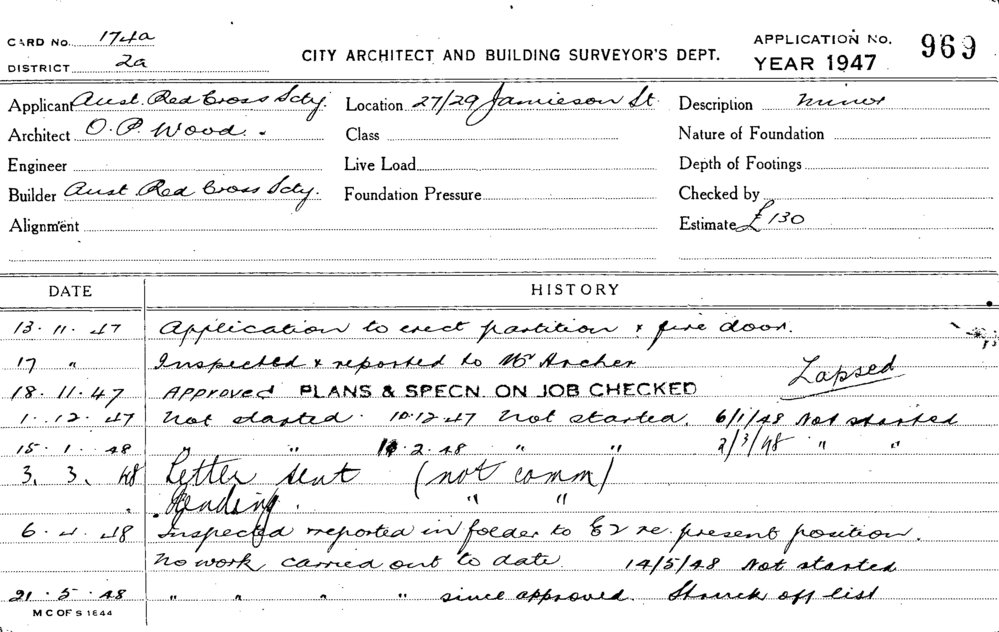 CARD No. 174a
DISTRICT 2a
CITY ARCHITECT AND BUILDING SURVEYOR'S DEPT.
APPLICATION No. 969
YEAR 1947
Applicant Aust. Red Cross Scty. Location 27/29 Jamieson St. Description minor
Architect O. P. Wood. Class Nature of Foundation
Engineer Live Load Depth of Footings
Builder Aust. Red Cross Scty. Foundation Pressure Checked by
Alignment Estimate £130
DATE HISTORY
13.11.47 Application to erect partition & fire door.
17 " Inspected & reported to Mr Archer
Lapsed
18.11.47 Approved PLANS & SPECN. ON JOB CHECKED
1.12.47 Not started. 10.12.47 Not started. 6/1/48 Not started
15.1.48 " " 2.48 " " 2/3/48 " "
3.3.48 Letter sent (not comm)
Pending. " "
6.4.48 Inspected & reported in folder to E2 re. present position.
No work carried out to date. 14/5/48 Not started
21.5.48 " " " " since approved. Struck off list
M C OF S 1644